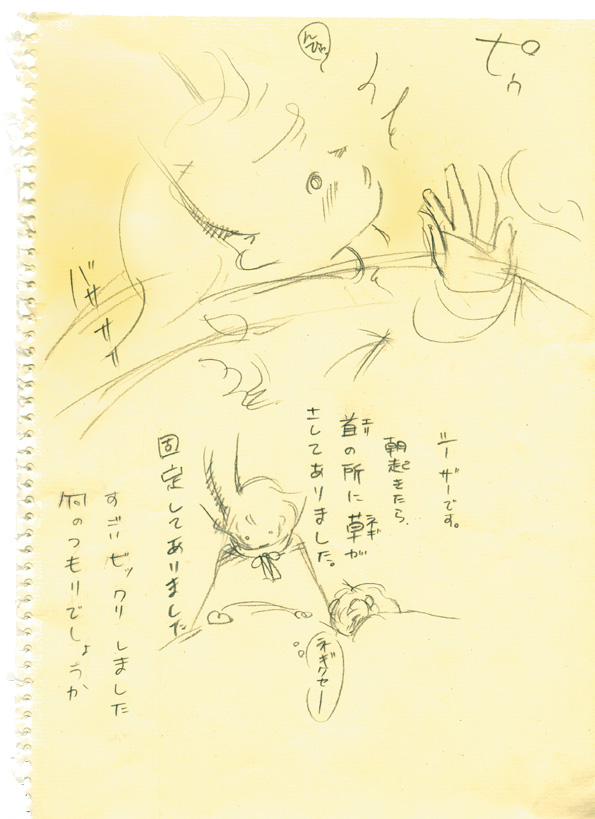 ピゥ
んびゃっ
バササササ
ジーザーです。
朝起きたら
首の所に草が
エリ
ネギ
さしてありました。
固定してありました
すごいビックリしました
何のつもりでしょうか
ネギクセー